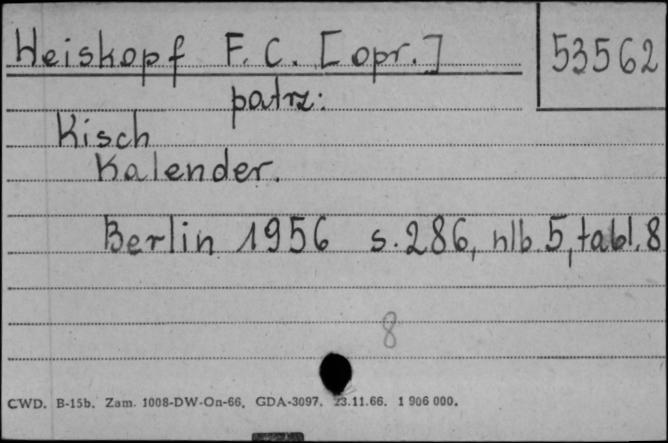 Weiskopf F. C. [opr.] 53562
patrz:
Kisch
Kalender.
Berlin 1956 s. 286, nlb. 5, tabl. 8
8
CWD. B-15b. Zam. 1008-DW-On-66. GDA-3097. 23.11.66. 1 906 000.